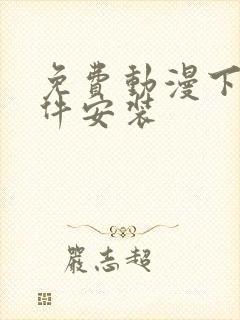 免費動漫下
件安裝
嚴志超